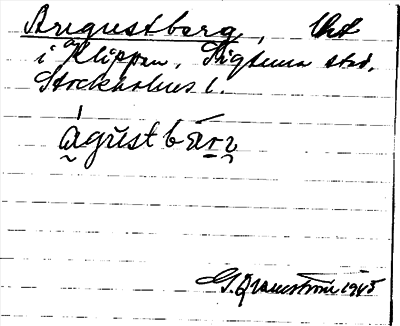 Augustberg, lht
i Klippan, Sigtuna stad,
Stockholms l.
ágústbärj
G. Qvarnström 1945